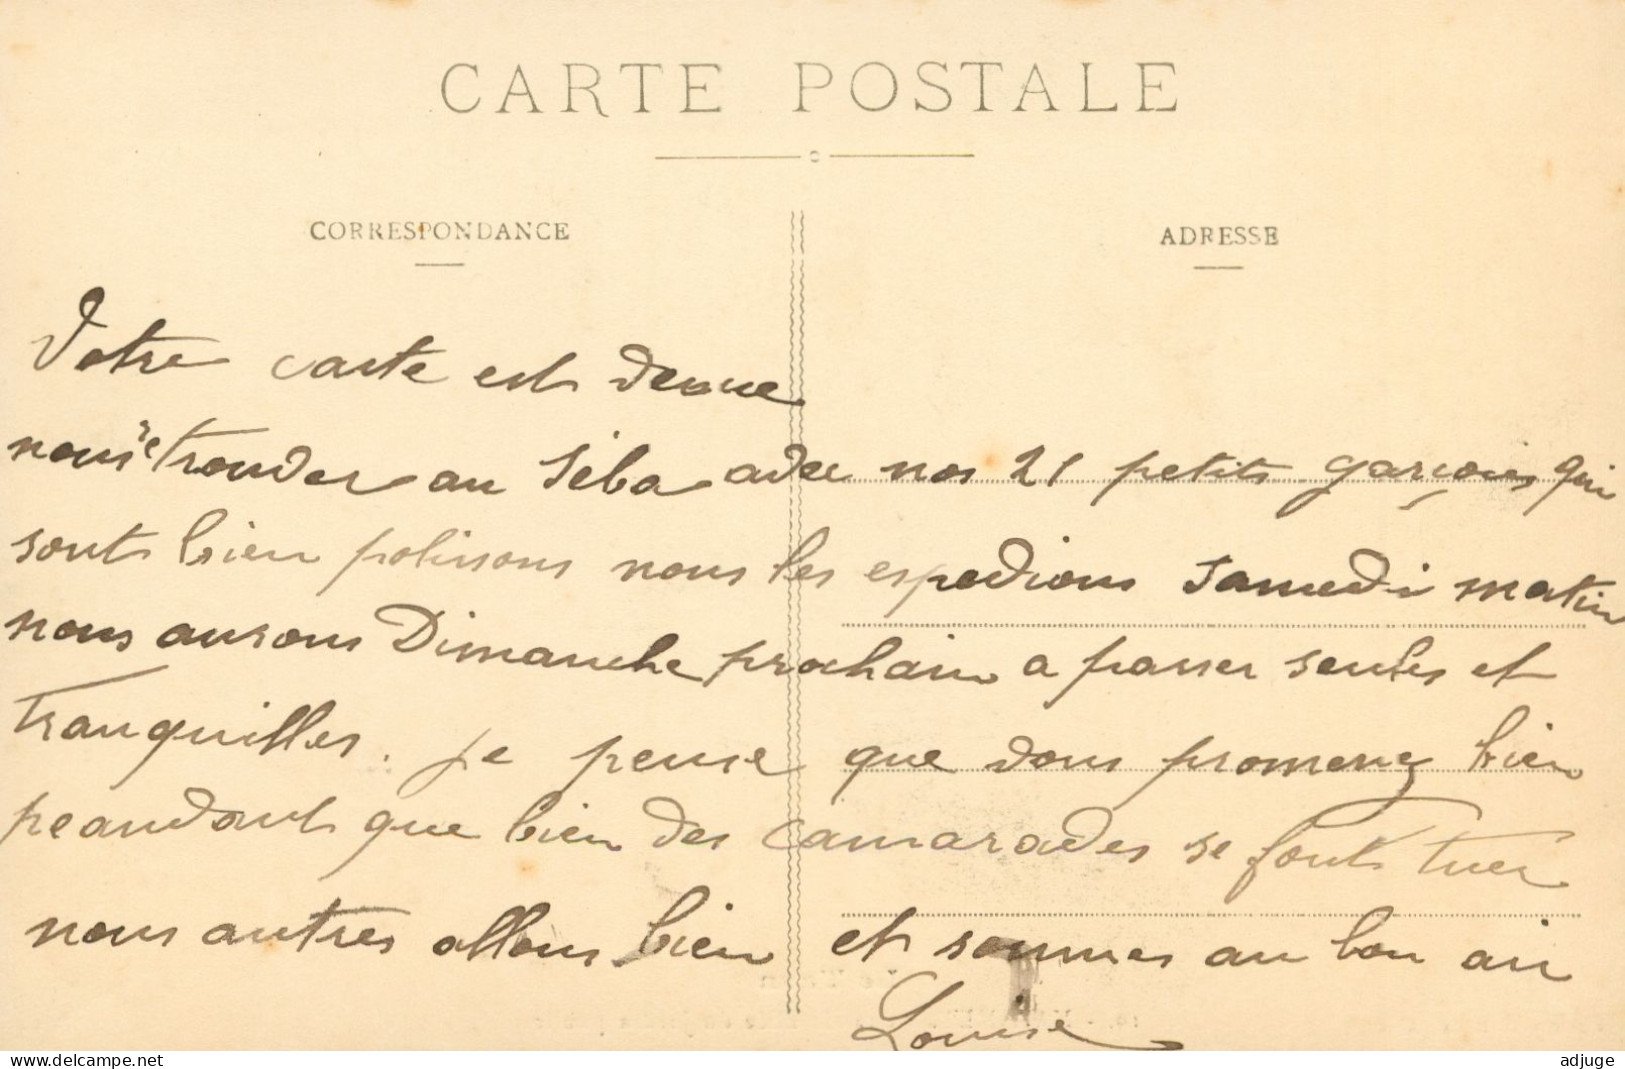 CARTE POSTALE
CORRESPONDANCE
ADRESSE
Votre carte est venue
nous retrouver au Séba avec nos 21 petits garçons qui
sont bien polissons nous les espedions Samedi matin
nous aurons Dimanche prochain a passer seules et
tranquilles. je pense que vous promenez bien
peandant que bien des camarades se font tuer
nous autres allons bien et sommes au bon air
Louise
www.delcampe.net
adjuge